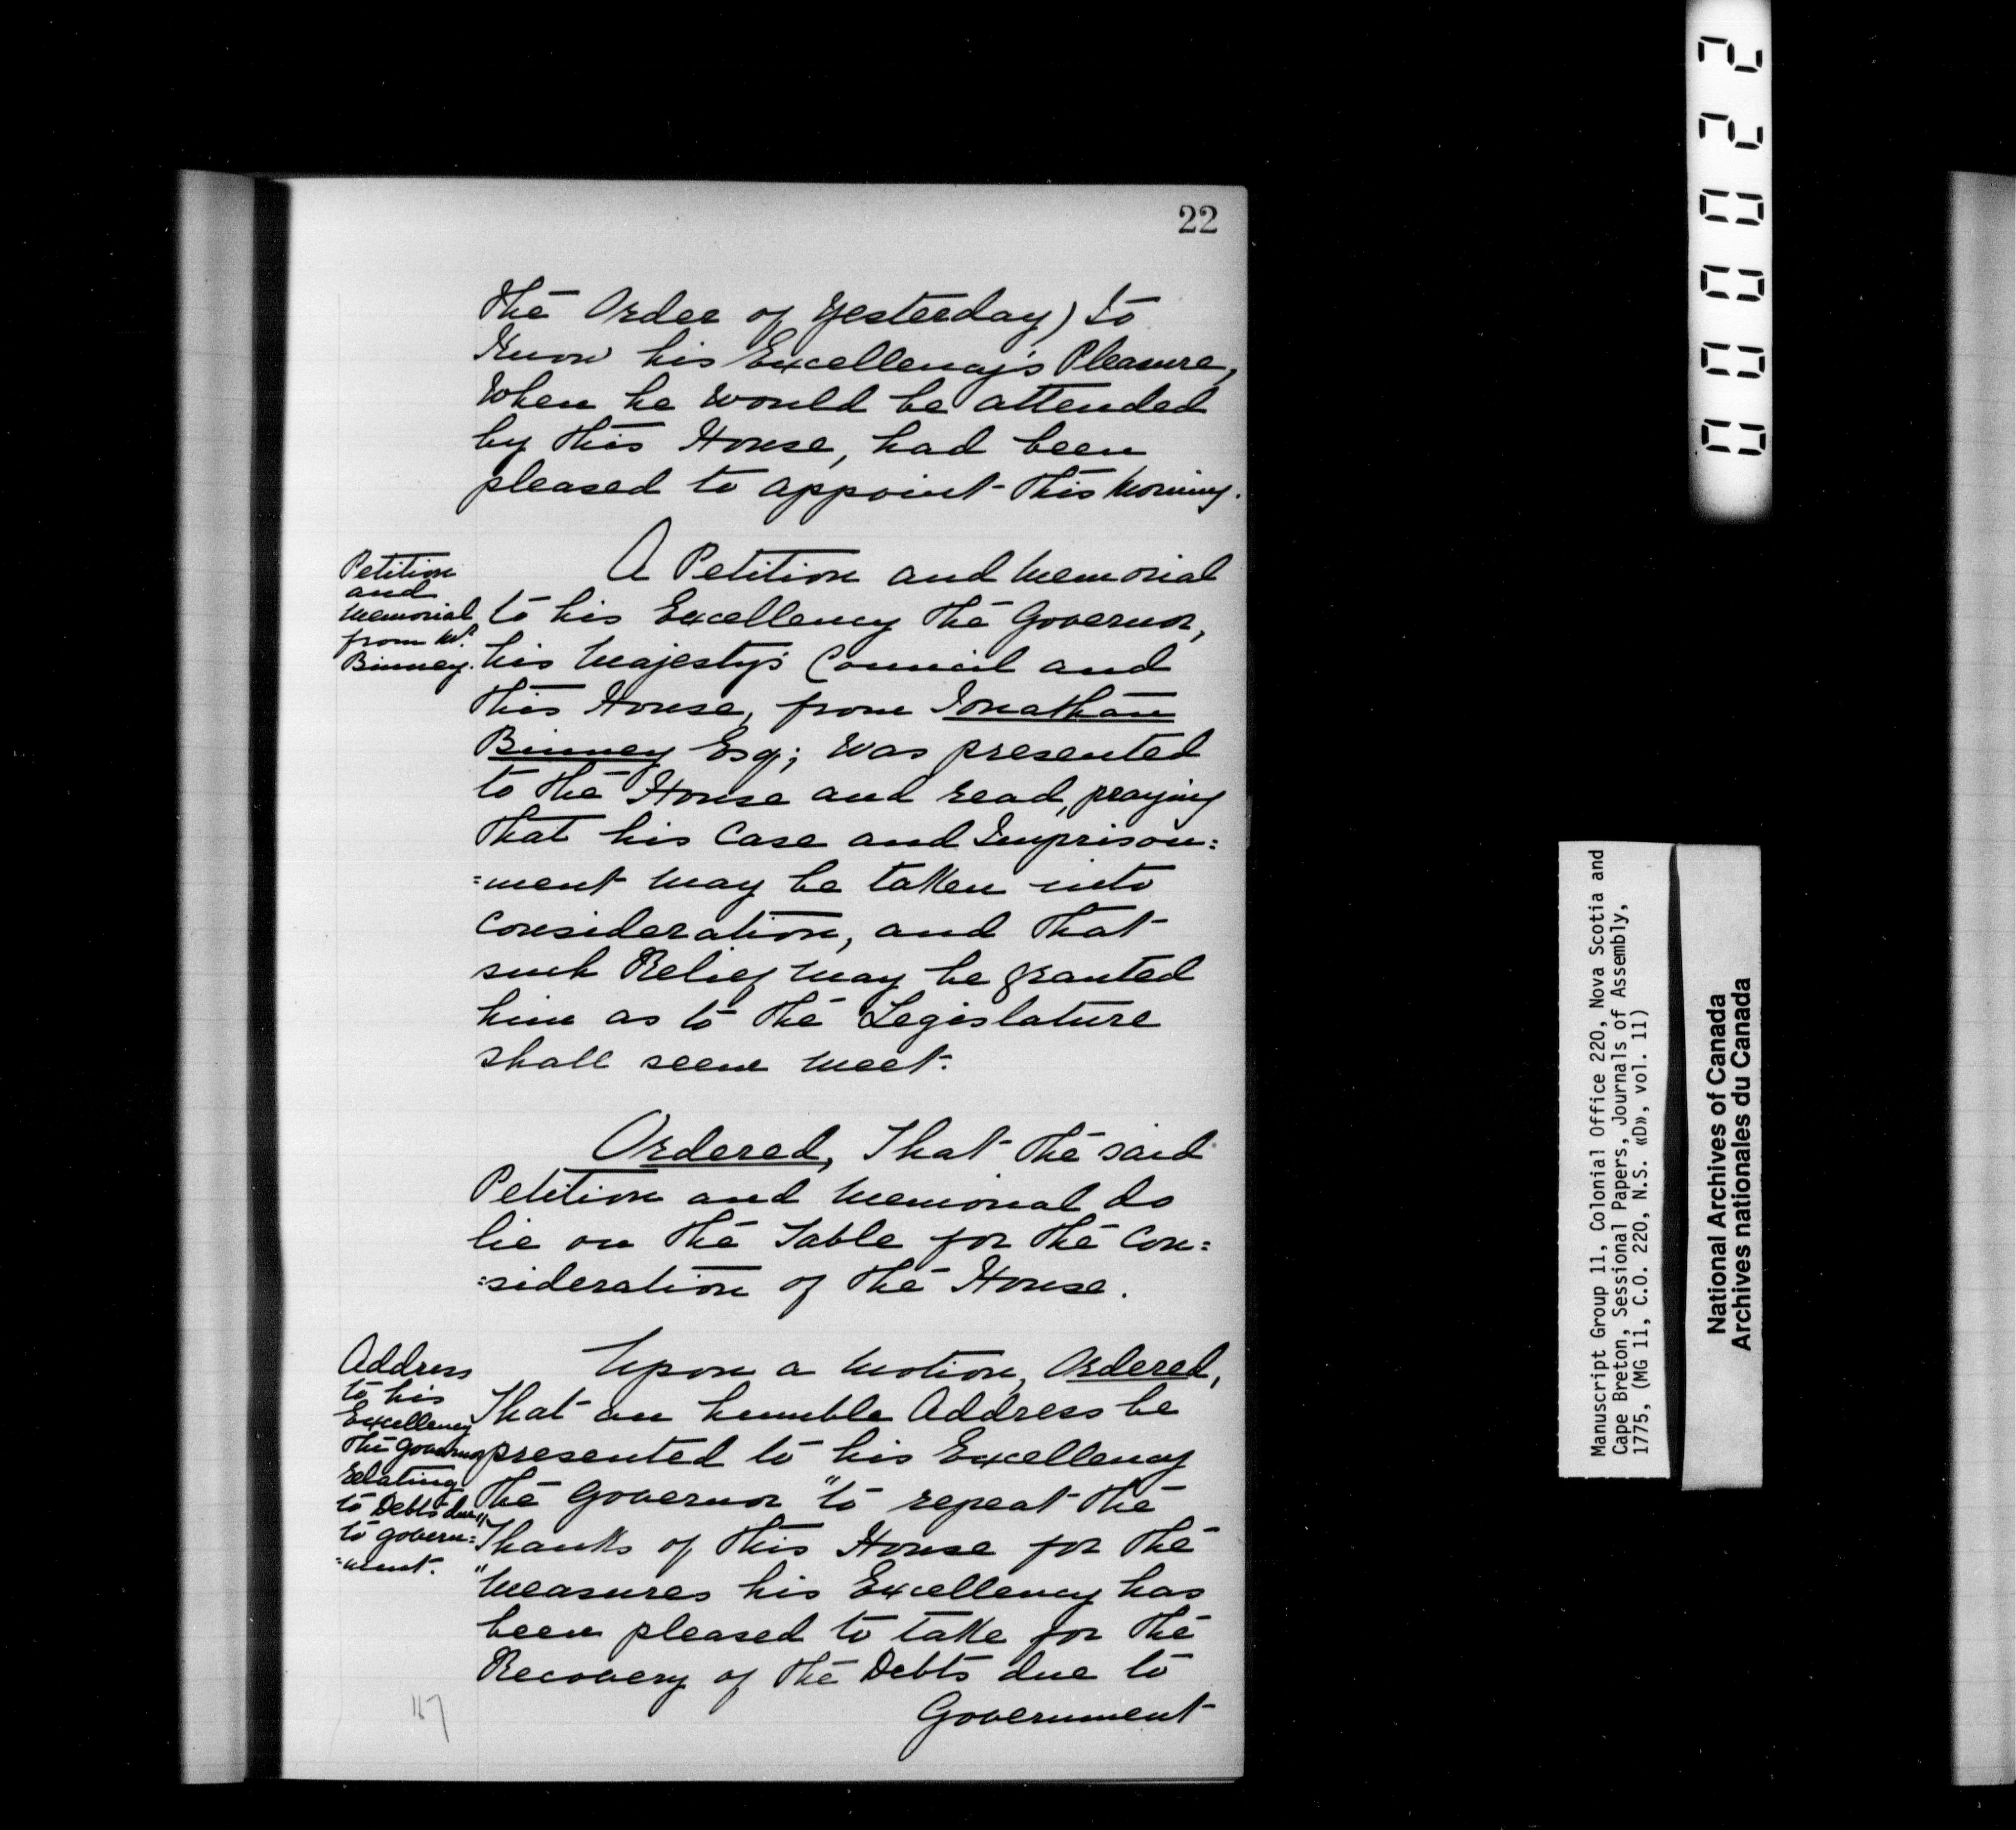 22
the Order of Yesterday) to
Know his Excellency's Pleasure,
When he would be attended
by this House, had been
pleased to appoint this Morning.
Petition
and
Memorial
from Mr.
Binney.
A Petition and Memorial
to his Excellency the Governor,
his Majesty's Council and
this House, from Jonathan
Binney Esq; was presented
to the House and read, praying
that his Case and Imprison:
:ment may be taken into
Consideration, and that
such Relief may be granted
him as to the Legislature
shall seem meet.
Ordered, That the said
Petition and Memorial do
lie on the Table for the Con:
:sideration of the House.
Address
to his
Excellency
the Governor
relating
to Debts due
to govern:
:ment.
Upon a Motion, Ordered,
That an humble Address be
presented to his Excellency
the Governor "to repeat the
"Thanks of this House for the
"Measures his Excellency has
been pleased to take for the
Recovery of the Debts due to
Government
000022
Manuscript Group 11, Colonial Office 220, Nova Scotia and
Cape Breton, Sessional Papers, Journals of Assembly,
1775, (MG 11, C.O. 220, N.S. «D», vol. 11)
National Archives of Canada
Archives nationales du Canada